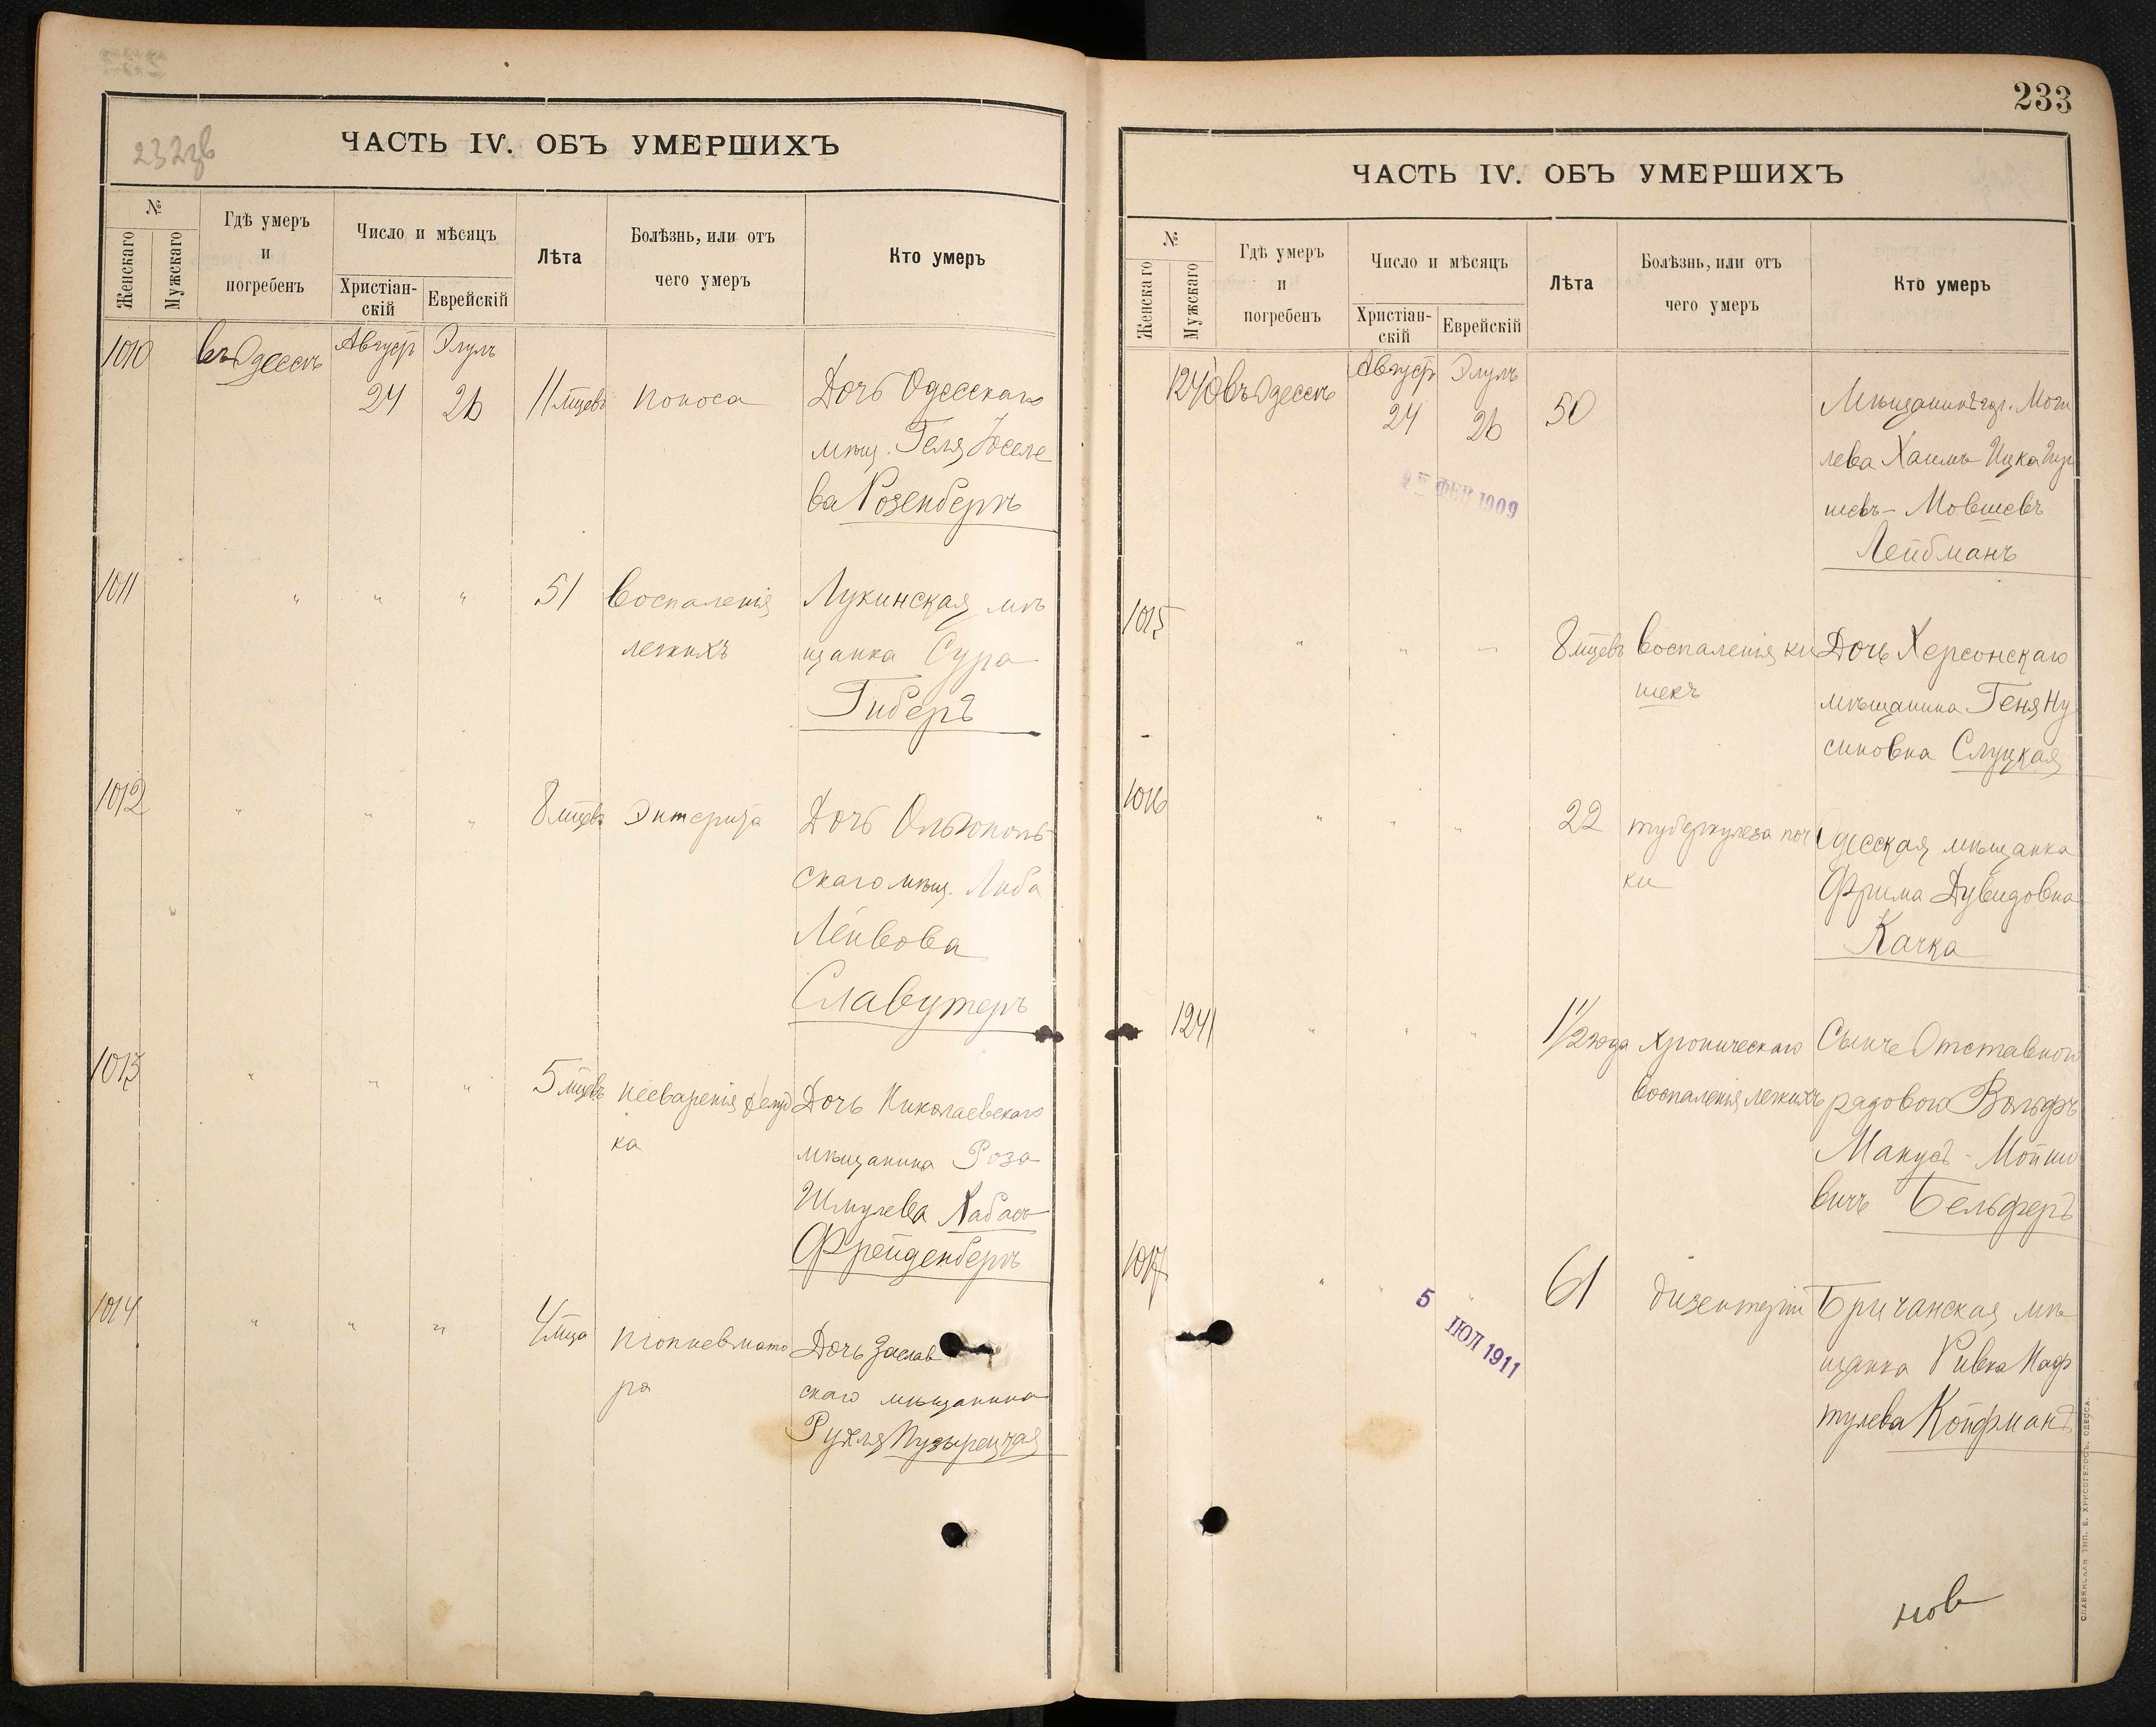 232зв
ЧАСТЬ IV. ОБЪ УМЕРШИХЪ
№
Женскаго
Мужскаго
Гдѣ умеръ
и
погребенъ
Число и мѣсяцъ
Христіан-
скій
Еврейскій
Лѣта
Болѣзнь, или отъ
чего умеръ
Кто умеръ
1010 въ Одессѣ Август Элулъ
24 26 11 мцевъ поноса Дочь Одесскаго
мѣщ. Геля Юселе
ва Розенбергъ
1011 " " " 51 воспаленія Лукинская мѣ
легкихъ щанка Сура
Гиберъ
1012 " " " 8 мцевъ Энтерита Дочь Ольгополь
скаго мѣщ. Либа
Лейвова
Славутеръ
1013 " " " 5 мцевъ несваренія желуд Дочь Николаевскаго
ка мѣщанина Роза
Шмулева Хабасъ
Фрейденбергъ
1014 " " " 4 мца піопневмото Дочь Заслав
ра скаго мѣщанина
Рухля Пузырецкая
233
ЧАСТЬ IV. ОБЪ УМЕРШИХЪ
№
Женскаго
Мужскаго
Гдѣ умеръ
и
погребенъ
Число и мѣсяцъ
Христіан-
скій
Еврейскій
Лѣта
Болѣзнь, или отъ
чего умеръ
Кто умеръ
1240 въ Одессѣ Август Элулъ
24 26 50 Мѣщанинъ гор. Моги
лева Хаимъ Ицка
шевъ-Мовшевъ
Лейбманъ
ФЕВ 1909
1015 " " " 8 мцевъ воспаленія ки Дочь Херсонскаго
шекъ мѣщанина Геня Ну
синовна Слуцкая
1016 " " " 22 туберкулеза поч Одесская мѣщанка
ки Фрима Дувидовна
Качка
1241 " " " 1 1/2 года хроническаго Сынъ Отставного
воспаленія легкихъ рядового Вольфъ
Манусъ-Мойшо
вичъ Бельферъ
1017 " " " 61 дизентеріи Бричанская мѣ
щанка Ривка Наф
тулева Койфманъ
5 ІЮЛ 1911
нов
СЛАВЯНСКАЯ ТИП. Е. ХРИСОГЕЛОСЪ, ОДЕССА.